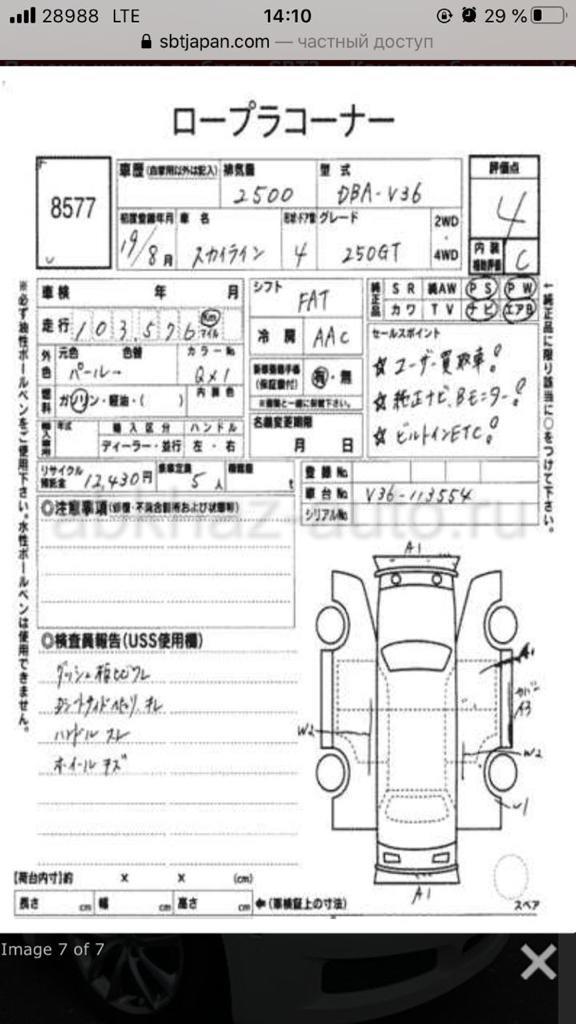 28988 LTE 14:10 29 %
sbtjapan.com — частный доступ
ロープラコーナー
8577
車歴 (自家用以外は記入) 排気量 型式 評価点
2500 DBA-V36 4
初度登録年月 車名 形状・ドア数 グレード 2WD
・
19/8月 スカイライン 4 250GT 4WD 内装補助評価 C
車検 年 月 シフト FAT
純正品 SR 純AW PS PW
カワ TV ナビ エアB
走行 103,576 Km マイル
冷房 AAC
セールスポイント
外色 元色 色替 カラーNo
パール→ QX1
☆ユーザー買取車!
☆純正ナビ、Bモニター!
☆ビルトインETC!
燃料 ガソリン・軽油・( ) 内装色
(保証書付) 有・無
輸入車用 年式 輸入区分 ハンドル
ディーラー・並行 左・右
名義変更期限
月 日
リサイクル預託金 12,430円 乗車定員 5人 積載量 t
登録No.
車台No. V36-113554
シリアルNo.
←純正品に限り該当に○をつけて下さい。
※必ず油性ボールペンをご使用下さい。水性ボールペンは使用できません。
◎注意事項(修復・不具合箇所および状態等)
abkhaz-auto.ru
◎検査員報告(USS使用欄)
ハンドル スレ
ホイール キズ
A1
A1
カバー
A3
W2
W2
U1
A1
スペア
【荷台内寸】約 x x (cm)
長さ cm 幅 cm 高さ cm ←(車検証上の寸法)
Image 7 of 7